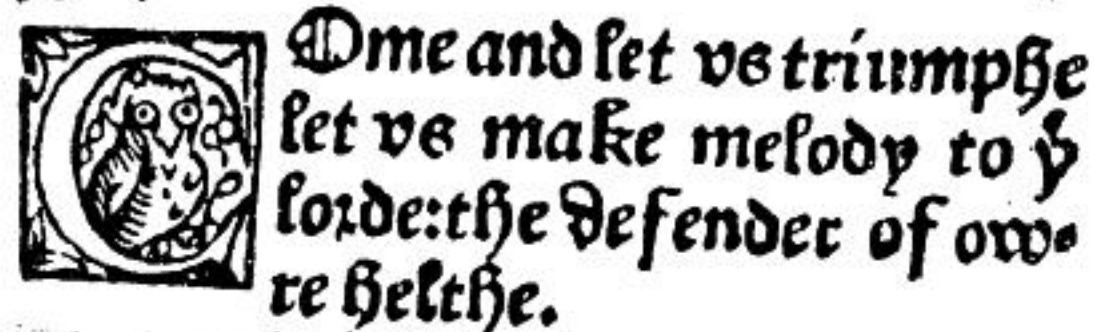 COme and let vs triumphe
let vs make melody to yͤ
lorde: the defender of ow⸗
re helthe.